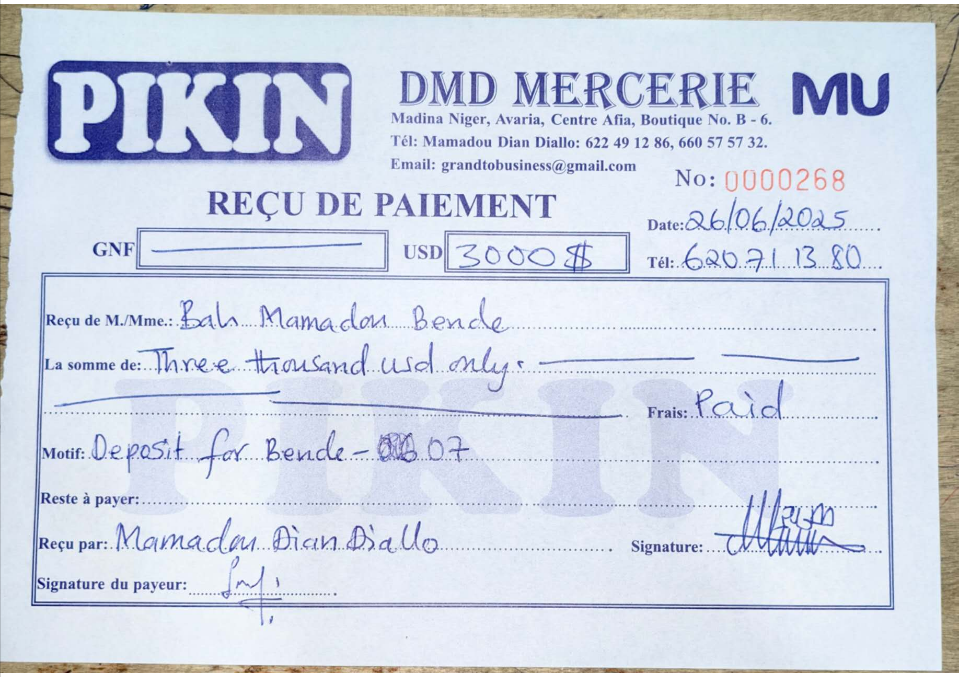 PIKIN
DMD MERCERIE
MU
Madina Niger, Avaria, Centre Afia, Boutique No. B - 6.
Tél: Mamadou Dian Diallo: 622 49 12 86, 660 57 57 32.
Email: grandtobusiness@gmail.com
No: 0000268
REÇU DE PAIEMENT
Date: 26/06/2025
GNF USD 3000 $
Tél: 620 71 13 80
Reçu de M./Mme.: Bah Mamadou Bende
La somme de: Three thousand usd only.
Frais: Paid
PIKIN
Motif: Deposit for Bende - 07
Reste à payer:
Reçu par: Mamadou Dian Diallo
Signature:
Signature du payeur: